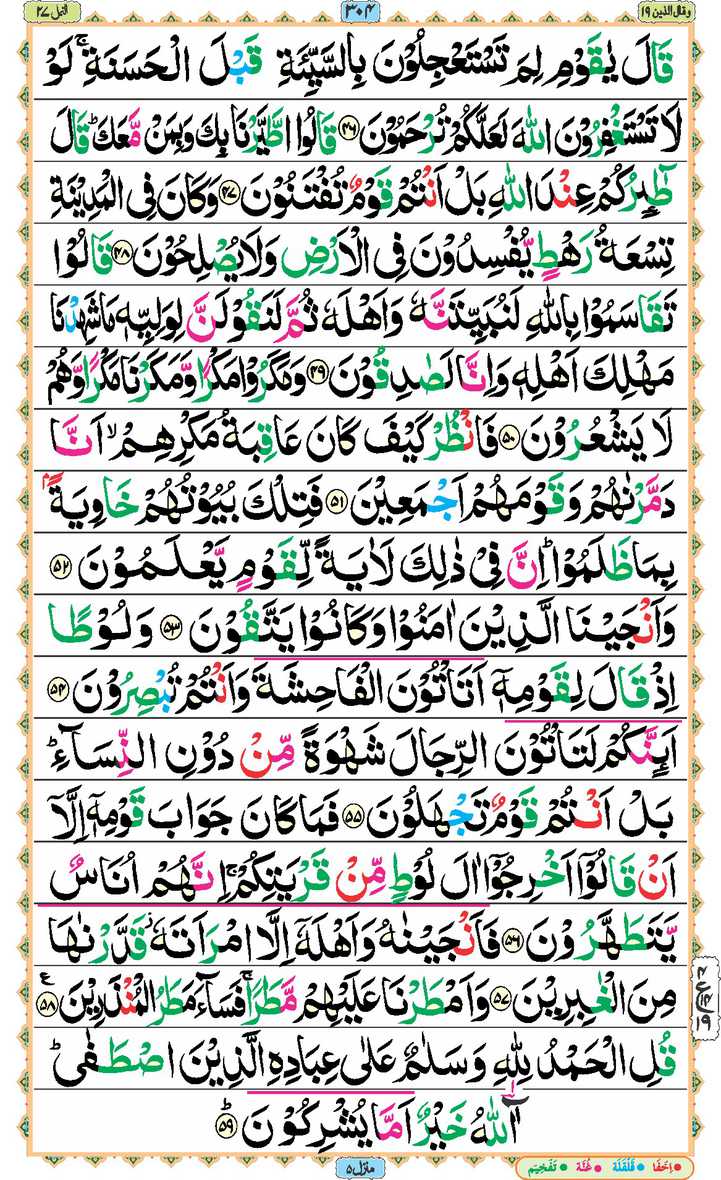 وقال الذين ١٩
٣٠٤
النمل ٢٧
قَالَ يٰقَوْمِ لِمَ تَسْتَعْجِلُوْنَ بِالسَّيِّئَةِ قَبْلَ الْحَسَنَةِ ۚ لَوْ
لَا تَسْتَغْفِرُوْنَ اللّٰهَ لَعَلَّكُمْ تُرْحَمُوْنَ ﴿۴۶﴾ قَالُوا اطَّيَّرْنَا بِكَ وَبِمَنْ مَّعَكَ ؕ قَالَ
طٰٓئِرُكُمْ عِنْدَ اللّٰهِ بَلْ اَنْتُمْ قَوْمٌ تُفْتَنُوْنَ ﴿۴۷﴾ وَكَانَ فِى الْمَدِيْنَةِ
تِسْعَةُ رَهْطٍ يُّفْسِدُوْنَ فِى الْاَرْضِ وَلَا يُصْلِحُوْنَ ﴿۴۸﴾ قَالُوْا
تَقَاسَمُوْا بِاللّٰهِ لَنُبَيِّتَنَّهٗ وَاَهْلَهٗ ثُمَّ لَنَقُوْلَنَّ لِوَلِيِّهٖ مَا شَهِدْنَا
مَهْلِكَ اَهْلِهٖ وَاِنَّا لَصٰدِقُوْنَ ﴿۴۹﴾ وَمَكَرُوْا مَكْرًا وَّمَكَرْنَا مَكْرًا وَّهُمْ
لَا يَشْعُرُوْنَ ﴿۵۰﴾ فَانْظُرْ كَيْفَ كَانَ عَاقِبَةُ مَكْرِهِمْ ۙ اَنَّا
دَمَّرْنٰهُمْ وَقَوْمَهُمْ اَجْمَعِيْنَ ﴿۵۱﴾ فَتِلْكَ بُيُوْتُهُمْ خَاوِيَةًۢ
بِمَا ظَلَمُوْا ؕ اِنَّ فِىْ ذٰلِكَ لَاٰيَةً لِّقَوْمٍ يَّعْلَمُوْنَ ﴿۵۲﴾
وَاَنْجَيْنَا الَّذِيْنَ اٰمَنُوْا وَكَانُوْا يَتَّقُوْنَ ﴿۵۳﴾ وَلُوْطًا
اِذْ قَالَ لِقَوْمِهٖٓ اَتَاْتُوْنَ الْفَاحِشَةَ وَاَنْتُمْ تُبْصِرُوْنَ ﴿۵۴﴾
اَئِنَّكُمْ لَتَاْتُوْنَ الرِّجَالَ شَهْوَةً مِّنْ دُوْنِ النِّسَآءِ ؕ
بَلْ اَنْتُمْ قَوْمٌ تَجْهَلُوْنَ ﴿۵۵﴾ فَمَا كَانَ جَوَابَ قَوْمِهٖٓ اِلَّآ
اَنْ قَالُوْٓا اَخْرِجُوْٓا اٰلَ لُوْطٍ مِّنْ قَرْيَتِكُمْ ۚ اِنَّهُمْ اُنَاسٌ
يَّتَطَهَّرُوْنَ ﴿۵۶﴾ فَاَنْجَيْنٰهُ وَاَهْلَهٗٓ اِلَّا امْرَاَتَهٗ ؗ قَدَّرْنٰهَا
مِنَ الْغٰبِرِيْنَ ﴿۵۷﴾ وَاَمْطَرْنَا عَلَيْهِمْ مَّطَرًا ۚ فَسَآءَ مَطَرُ الْمُنْذَرِيْنَ ﴿۵۸﴾
قُلِ الْحَمْدُ لِلّٰهِ وَسَلٰمٌ عَلٰى عِبَادِهِ الَّذِيْنَ اصْطَفٰى ؕ
آٰللّٰهُ خَيْرٌ اَمَّا يُشْرِكُوْنَ ﴿۵۹﴾ؕ
منزل ۵
اِخفَا قَلقَلَة غُنَّة تَفخِيم